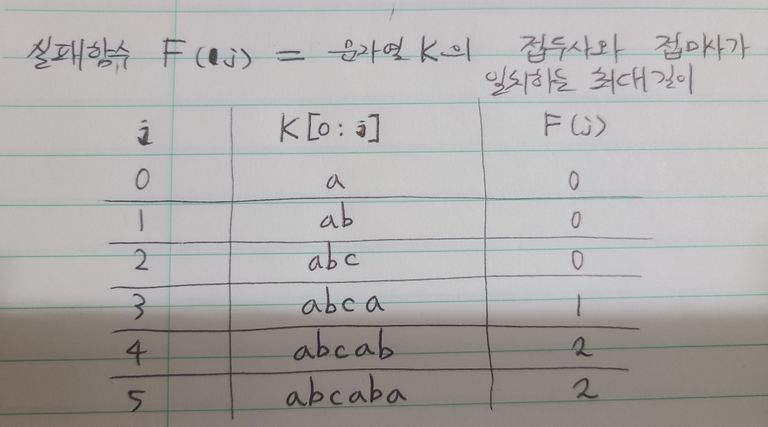 실패함수 F(j) = 문자열 K의 접두사와 접미사가
일치하는 최대길이
j K[0:j] F(j)
0 a 0
1 ab 0
2 abc 0
3 abca 1
4 abcab 2
5 abcaba 2